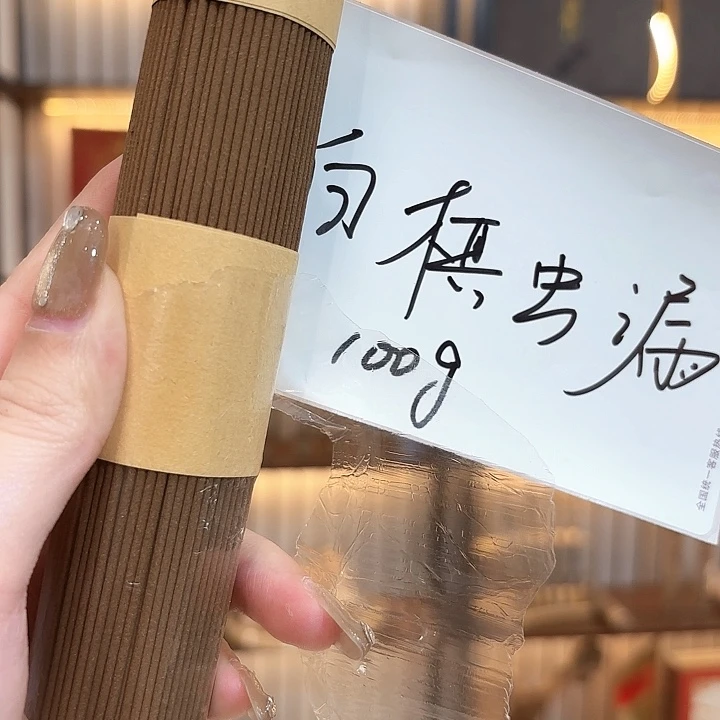 白棋虫漏
100g
全国统一客服热线